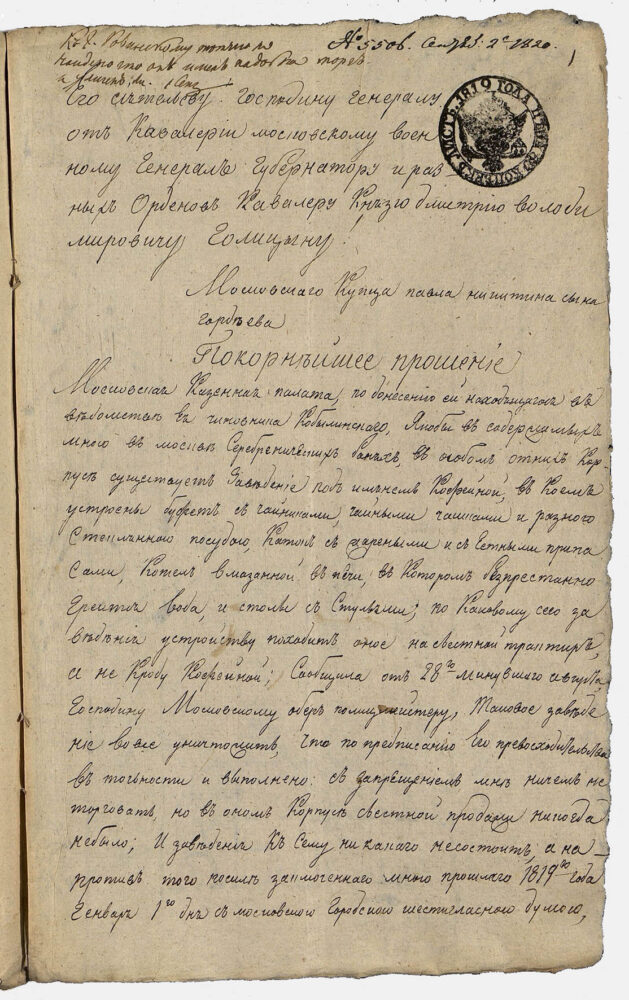 № 5506. Сентяб: 2е 1820.
1
ЛИСТЪ 1819 ГОДА ЦѢНА 50 КОПѢЕКЪ
Его сіятельству. Господину Генералу
отъ Кавалеріи московскому воен
ному Генералъ Губернатору и раз
ныхъ Орденовъ Кавалеру Князю дмитрію володи
мировичу Голицыну.
Московскаго Купца павла никитина сына
гордѣева
Покорнѣйшее прошеніе
Московская Казенная палата, по донесенію ей находящагося въ
вѣдомствѣ ея чиновника Кобылинскаго, Якобы въ содержимыхъ
мною въ москвѣ Серебреническихъ баняхъ, въ особомъ отнихъ Кор-
пусѣ существуетъ Заведеніе подъ имянемъ Кофейной, въ Коемъ
устроены буфетъ съ чайниками, чайными чашками и разною
Стеклянною посудою, Катокъ съ жареными и съестными припа
сами, Котелъ вмазанной въ печи, въ Которомъ безпрестанно
греится вода, и столы съ Стульями; по Каковому сего за
вѣденія устройству походитъ оное на свестной трактиръ,
а не Кроду Кофейной; Сообщила отъ 28го минувшаго августа
Господину Московскому оберъ полицмейстеру, Таковое завѣде
ніе вовсе уничтожить, что по предписанію Его превосходительства
въ точности и выполнено: съ запрещеніемъ мнѣ ничемъ не
торговать, но въ ономъ Корпусѣ свестной продажи никогда
небыло; И завѣденія Къ Сему никакаго несостоитъ, а на-
противъ того посилѣ заключеннаго мною прошлаго 1819го года
Генваря 1го дня съ московскою Городскою шестигласною думою,